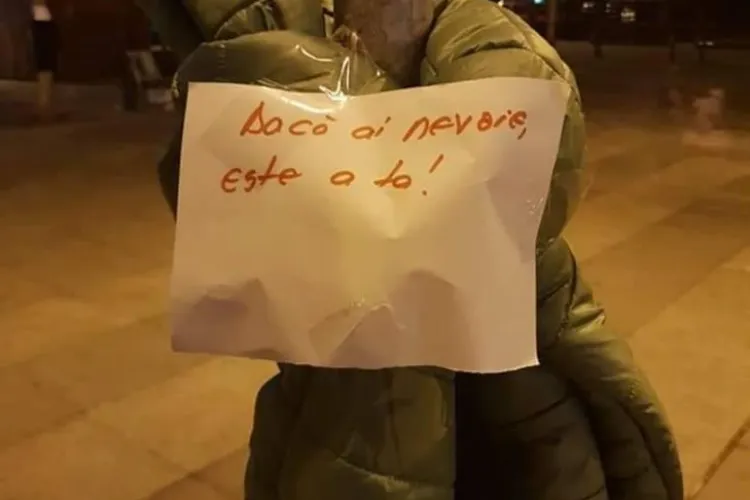 Dacă ai nevoie,
este a ta!